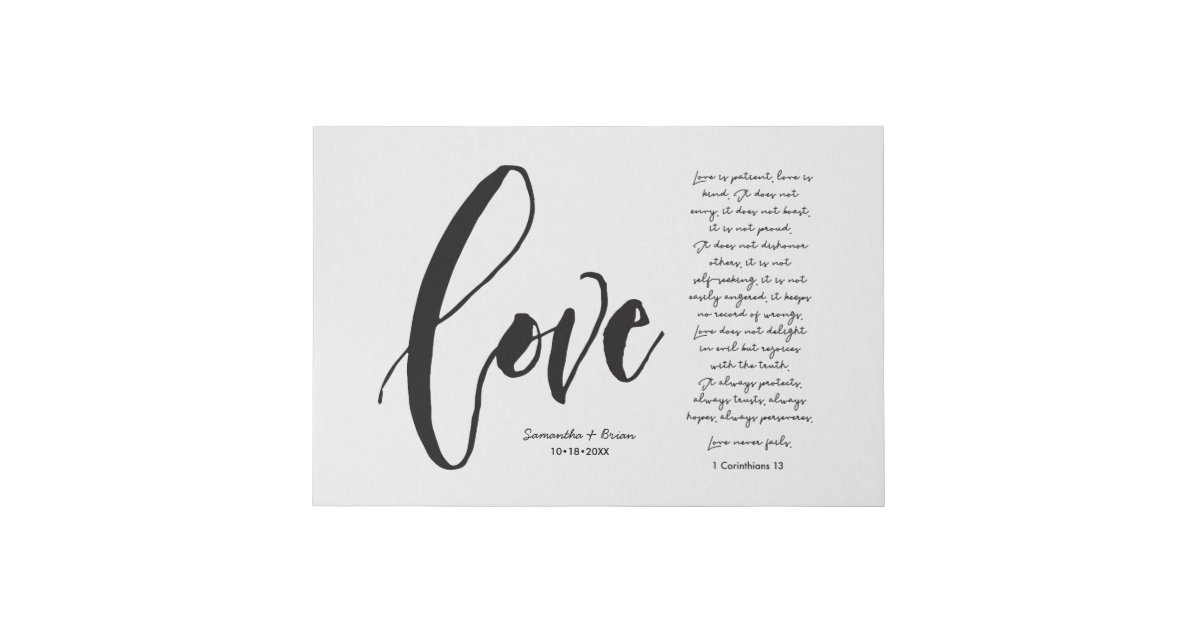 love
Samantha + Brian
10•18•20XX
Love is patient, love is
kind. It does not
envy, it does not boast,
it is not proud.
It does not dishonor
others, it is not
self-seeking, it is not
easily angered, it keeps
no record of wrongs.
Love does not delight
in evil but rejoices
with the truth.
It always protects,
always trusts, always
hopes, always perseveres.
Love never fails.
1 Corinthians 13